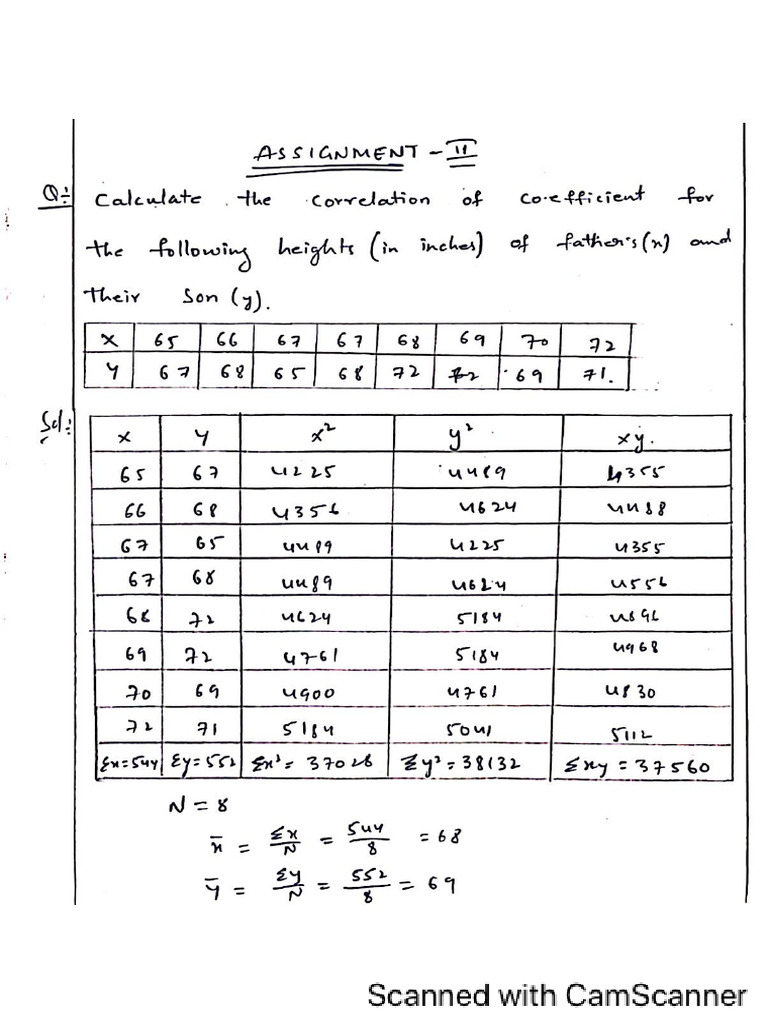 ASSIGNMENT - II
Q:- Calculate the correlation of co-efficient for
the following heights (in inches) of father's (x) and
their son (y).
X 65 66 67 67 68 69 70 72
Y 67 68 65 68 72 72 69 71.
Sol:-
x y x² y² xy.
65 67 4225 4489 4355
66 68 4356 4624 4488
67 65 4489 4225 4355
67 68 4489 4624 4556
68 72 4624 5184 4896
69 72 4761 5184 4968
70 69 4900 4761 4830
72 71 5184 5041 5112
Σx=544 Σy=552 Σx²= 37028 Σy²=38132 Σxy = 37560
N = 8
x̄ = Σx/N = 544/8 = 68
ȳ = Σy/N = 552/8 = 69
Scanned with CamScanner